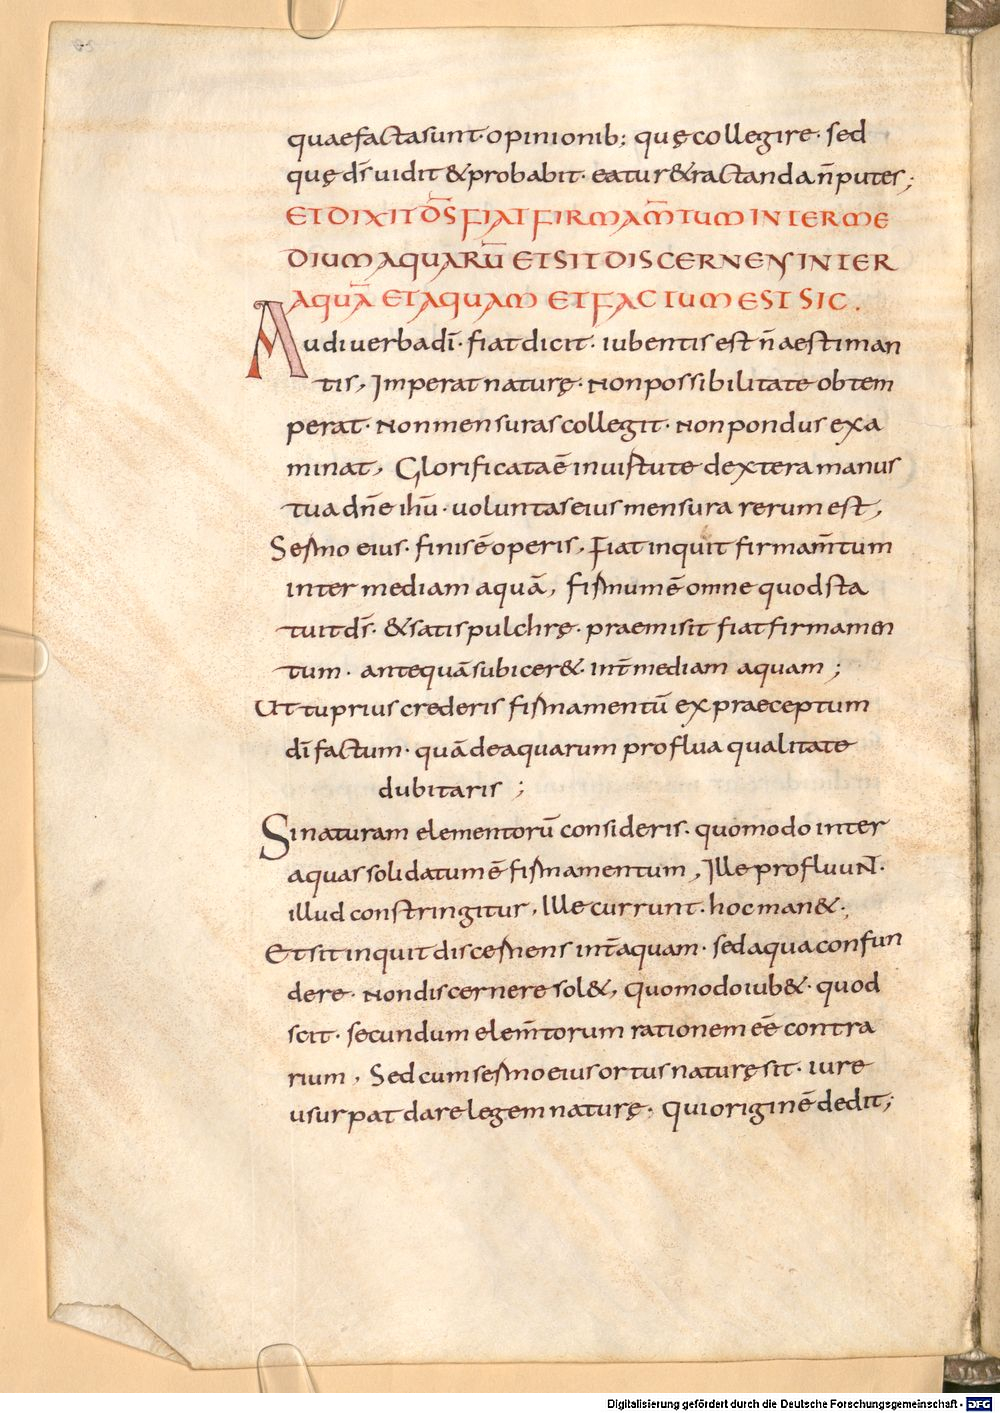 quae facta sunt· opinionib; quę collegire· sed
quę d̄s uidit & probabit· ea tur & ractanda n̄ putes;
ET DIXIT D̄S FIAT FIRMAM̄TUM INTER ME
DIUM AQUARŪ ET SIT DISCERNENS INTER
AQUĀ ET AQUAM ET FACTUM EST SIC.
Audi uerba dī· fiat dicit· iubentis est n̄ aestiman
tis, Imperat naturę· Non possibilitate obtem
perat· Non mensuras collegit· Non pondus exa
minat, Glorificata ē in uirtute dextera manus
tua dn̄e ihū· uoluntas eius mensura rerum est,
Sermo eius· finis ē operis, Fiat inquit firmam̄tum
inter mediam aquā, firmum ē omne quod sta
tuit d̄s· & satis pulchrę· praemisit fiat firmamen
tum· antequā subicer&· int̄ mediam aquam;
Ut tu prius crederis firmamentū ex praeceptum
dī factum· quā de aquarum proflua qualitate
dubitaris;
Si naturam elementorū consideris· quomodo inter
aquas solidatum ē firmamentum, Ille profluuNt·
illud constringitur, Ille currunt· hoc man&·,
Et sit inquit discernens int̄ aquam· sed aqua confun
dere· Non discernere sol&, Quomodo iub&· quod
scit· secundum elem̄torum rationem eē contra
rium, Sed cum sermo eius ortus naturę sit· iure
usurpat dare legem naturę· qui originē dedit;
Digitalisierung gefördert durch die Deutsche Forschungsgemeinschaft - DFG